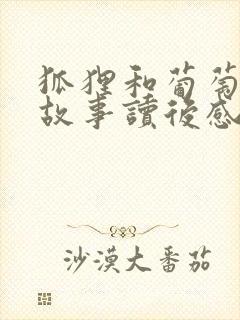 狐狸和葡萄
故事讀後感
沙漠大番茄